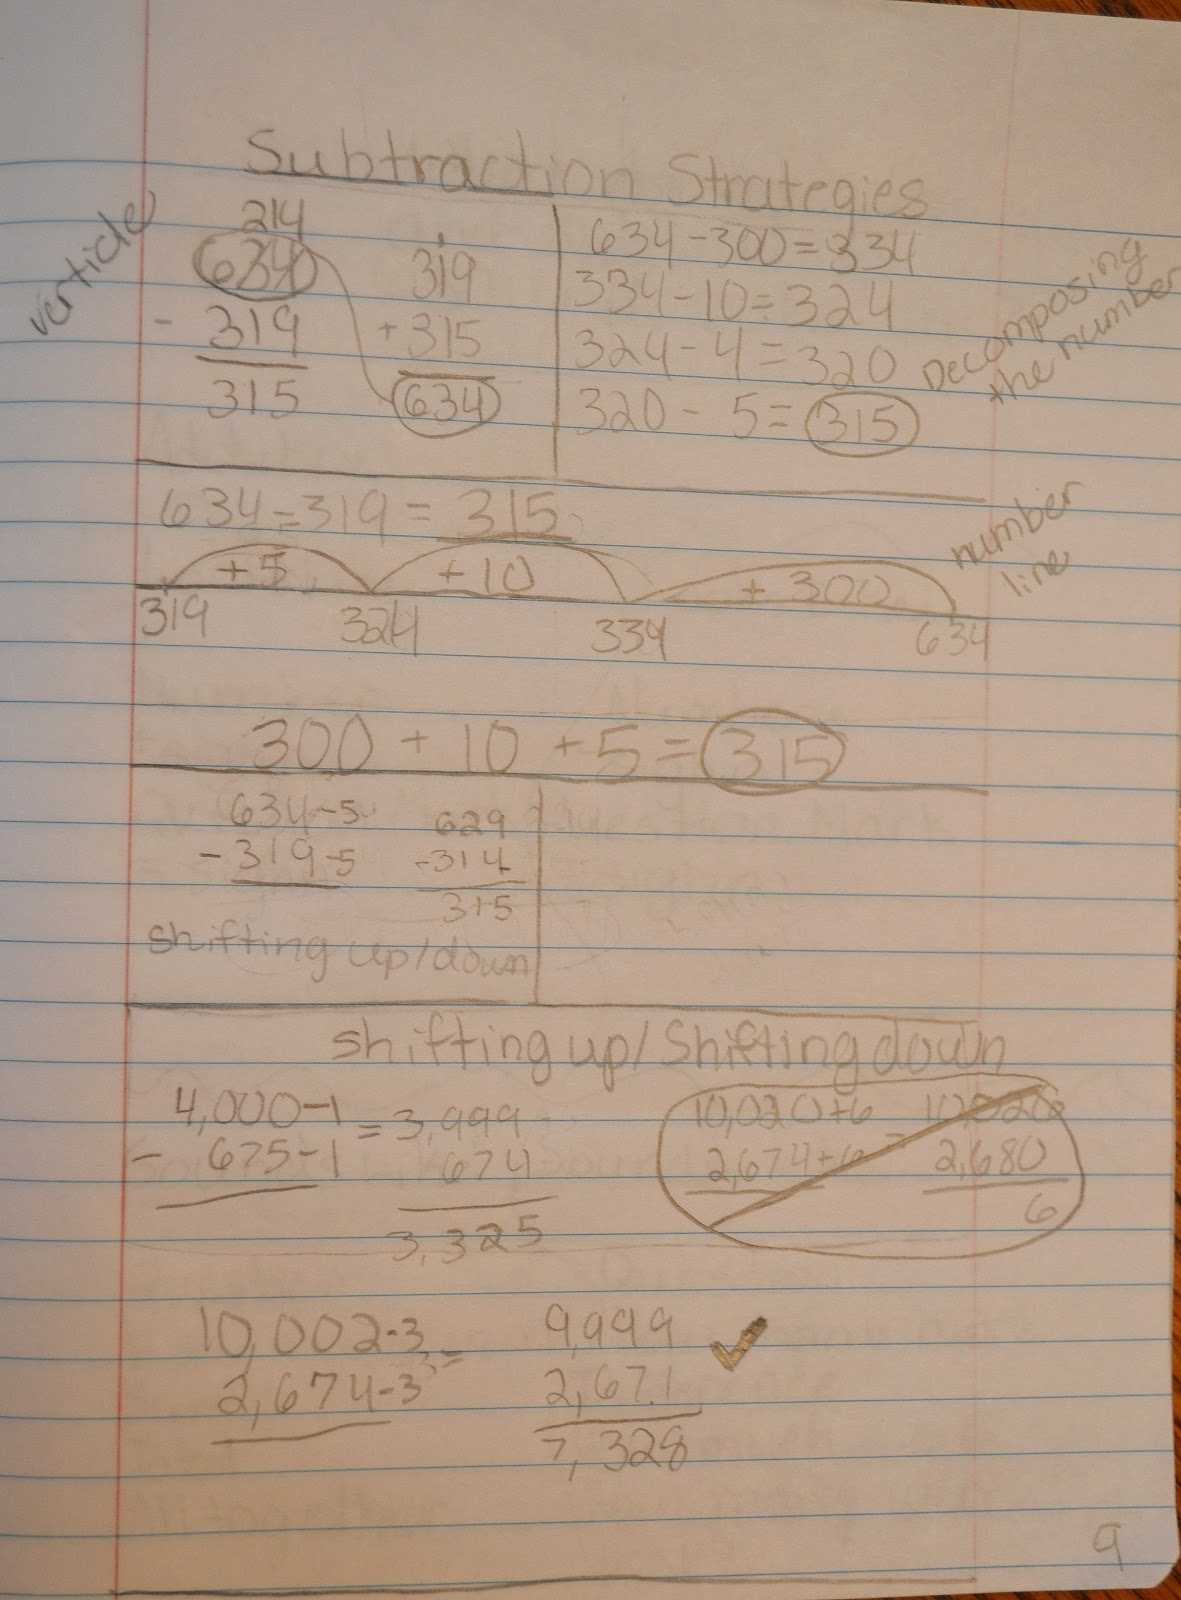 Subtraction Strategies
verticle
214
634
- 319
315
1
319
+ 315
634
634 - 300 = 334
334 - 10 = 324
324 - 4 = 320
320 - 5 = 315
Decomposing
the number
634 - 319 = 315
number
line
+ 5 + 10 + 300
319 324 334 634
300 + 10 + 5 = 315
634 - 5 629
- 319 - 5 - 314
315
shifting up/down
shifting up/Shifting down
4,000 - 1 = 3,999
- 675 - 1 674
3,325
10,020 + 6 = 10,026
2,674 + 6 2,680
6
10,002 - 3 = 9,999 ✓
2,674 - 3 2,671
7,328
9